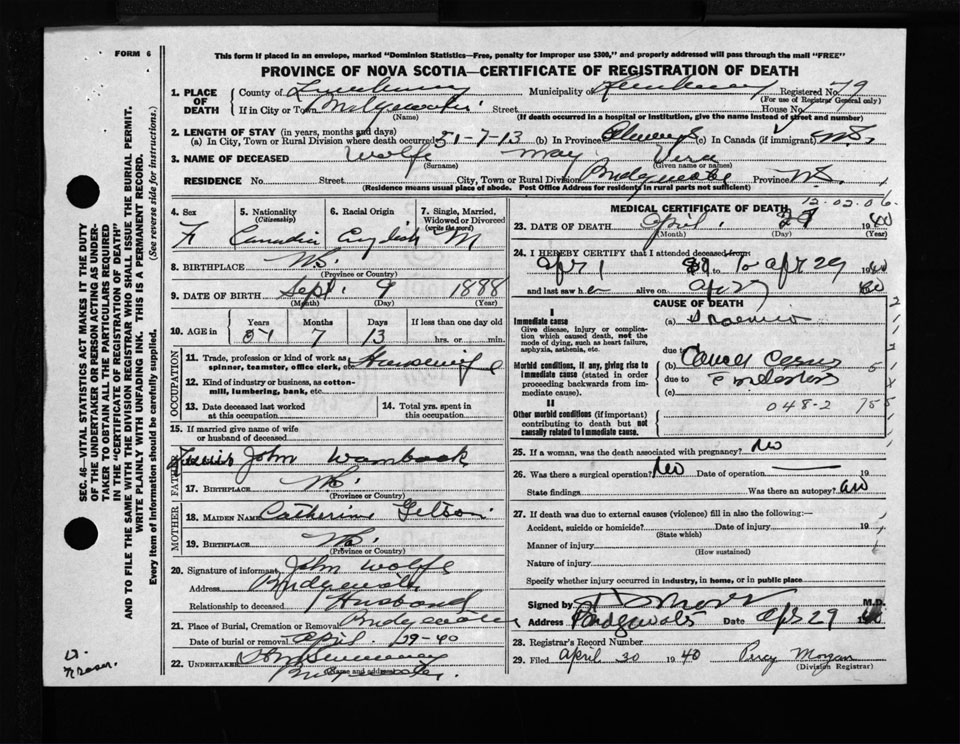 FORM 6
This form if placed in an envelope, marked "Dominion Statistics—Free, penalty for improper use $300," and properly addressed will pass through the mail "FREE"
PROVINCE OF NOVA SCOTIA—CERTIFICATE OF REGISTRATION OF DEATH
1. PLACE OF DEATH County of Lunenburg Municipality of Lunenburg Registered No. 79
(For use of Registrar General only)
If in City or Town Bridgewater Street House No.
(Name) (If death occurred in a hospital or institution, give the name instead of street and number)
2. LENGTH OF STAY (in years, months and days)
(a) In City, Town or Rural Division where death occurred 51-7-13 (b) In Province Always (c) In Canada (if immigrant) N.S.
3. NAME OF DECEASED Wolfe May Vera
(Surname) (Given name or names)
RESIDENCE No. Street City, Town or Rural Division Bridgewater Province N.S.
(Residence means usual place of abode. Post Office Address for residents in rural parts not sufficient)
SEC. 46—VITAL STATISTICS ACT MAKES IT THE DUTY
OF THE UNDERTAKER OR PERSON ACTING AS UNDER-
TAKER TO OBTAIN ALL THE PARTICULARS REQUIRED
IN THE "CERTIFICATE OF REGISTRATION OF DEATH"
AND TO FILE THE SAME WITH THE DIVISION REGISTRAR WHO SHALL ISSUE THE BURIAL PERMIT.
WRITE PLAINLY WITH UNFADING INK. THIS IS A PERMANENT RECORD.
Every item of information should be carefully supplied. (See reverse side for instructions.)
4. Sex 5. Nationality (Citizenship) 6. Racial Origin 7. Single, Married, Widowed or Divorced (write the word)
F Canadian English M
8. BIRTHPLACE N.S.
(Province or Country)
9. DATE OF BIRTH Sept. 9 1888
(Month) (Day) (Year)
10. AGE in Years Months Days If less than one day old
51 7 13 hrs. or min.
OCCUPATION
11. Trade, profession or kind of work as spinner, teamster, office clerk, etc. Housewife
12. Kind of industry or business, as cotton-mill, lumbering, bank, etc.
13. Date deceased last worked at this occupation
14. Total yrs. spent in this occupation
15. If married give name of wife or husband of deceased
FATHER
John Wamback
17. BIRTHPLACE N.S.
(Province or Country)
MOTHER
18. MAIDEN NAME Catherine
19. BIRTHPLACE N.S.
(Province or Country)
20. Signature of informant John Wolfe
Address Bridgewater
Relationship to deceased Husband
21. Place of Burial, Cremation or Removal Bridgewater
Date of burial or removal April 29-40
22. UNDERTAKER
Bridgewater
12.02.06.
MEDICAL CERTIFICATE OF DEATH
23. DATE OF DEATH April 29 1940
(Month) (Day) (Year)
24. I HEREBY CERTIFY that I attended deceased from:
Apr 1 to Apr 29 1940
and last saw her alive on Apr 29 40
CAUSE OF DEATH
I
Immediate cause
Give disease, injury or complication which caused death, not the mode of dying, such as heart failure, asphyxia, asthenia, etc.
(a)
due to
Morbid conditions, if any, giving rise to immediate cause (stated in order proceeding backwards from immediate cause).
(b) Cancer
due to
(c)
048-2
II
Other morbid conditions (if important) contributing to death but not causally related to immediate cause.
25. If a woman, was the death associated with pregnancy? No
26. Was there a surgical operation? No Date of operation 19
State findings Was there an autopsy?
27. If death was due to external causes (violence) fill in also the following:—
Accident, suicide or homicide? Date of injury 19
(State which)
Manner of injury
(How sustained)
Nature of injury
Specify whether injury occurred in industry, in home, or in public place
Signed by M.D.
Address Bridgewater Date Apr 29 40
28. Registrar's Record Number
29. Filed April 30 1940 Percy Morgan
(Division Registrar)